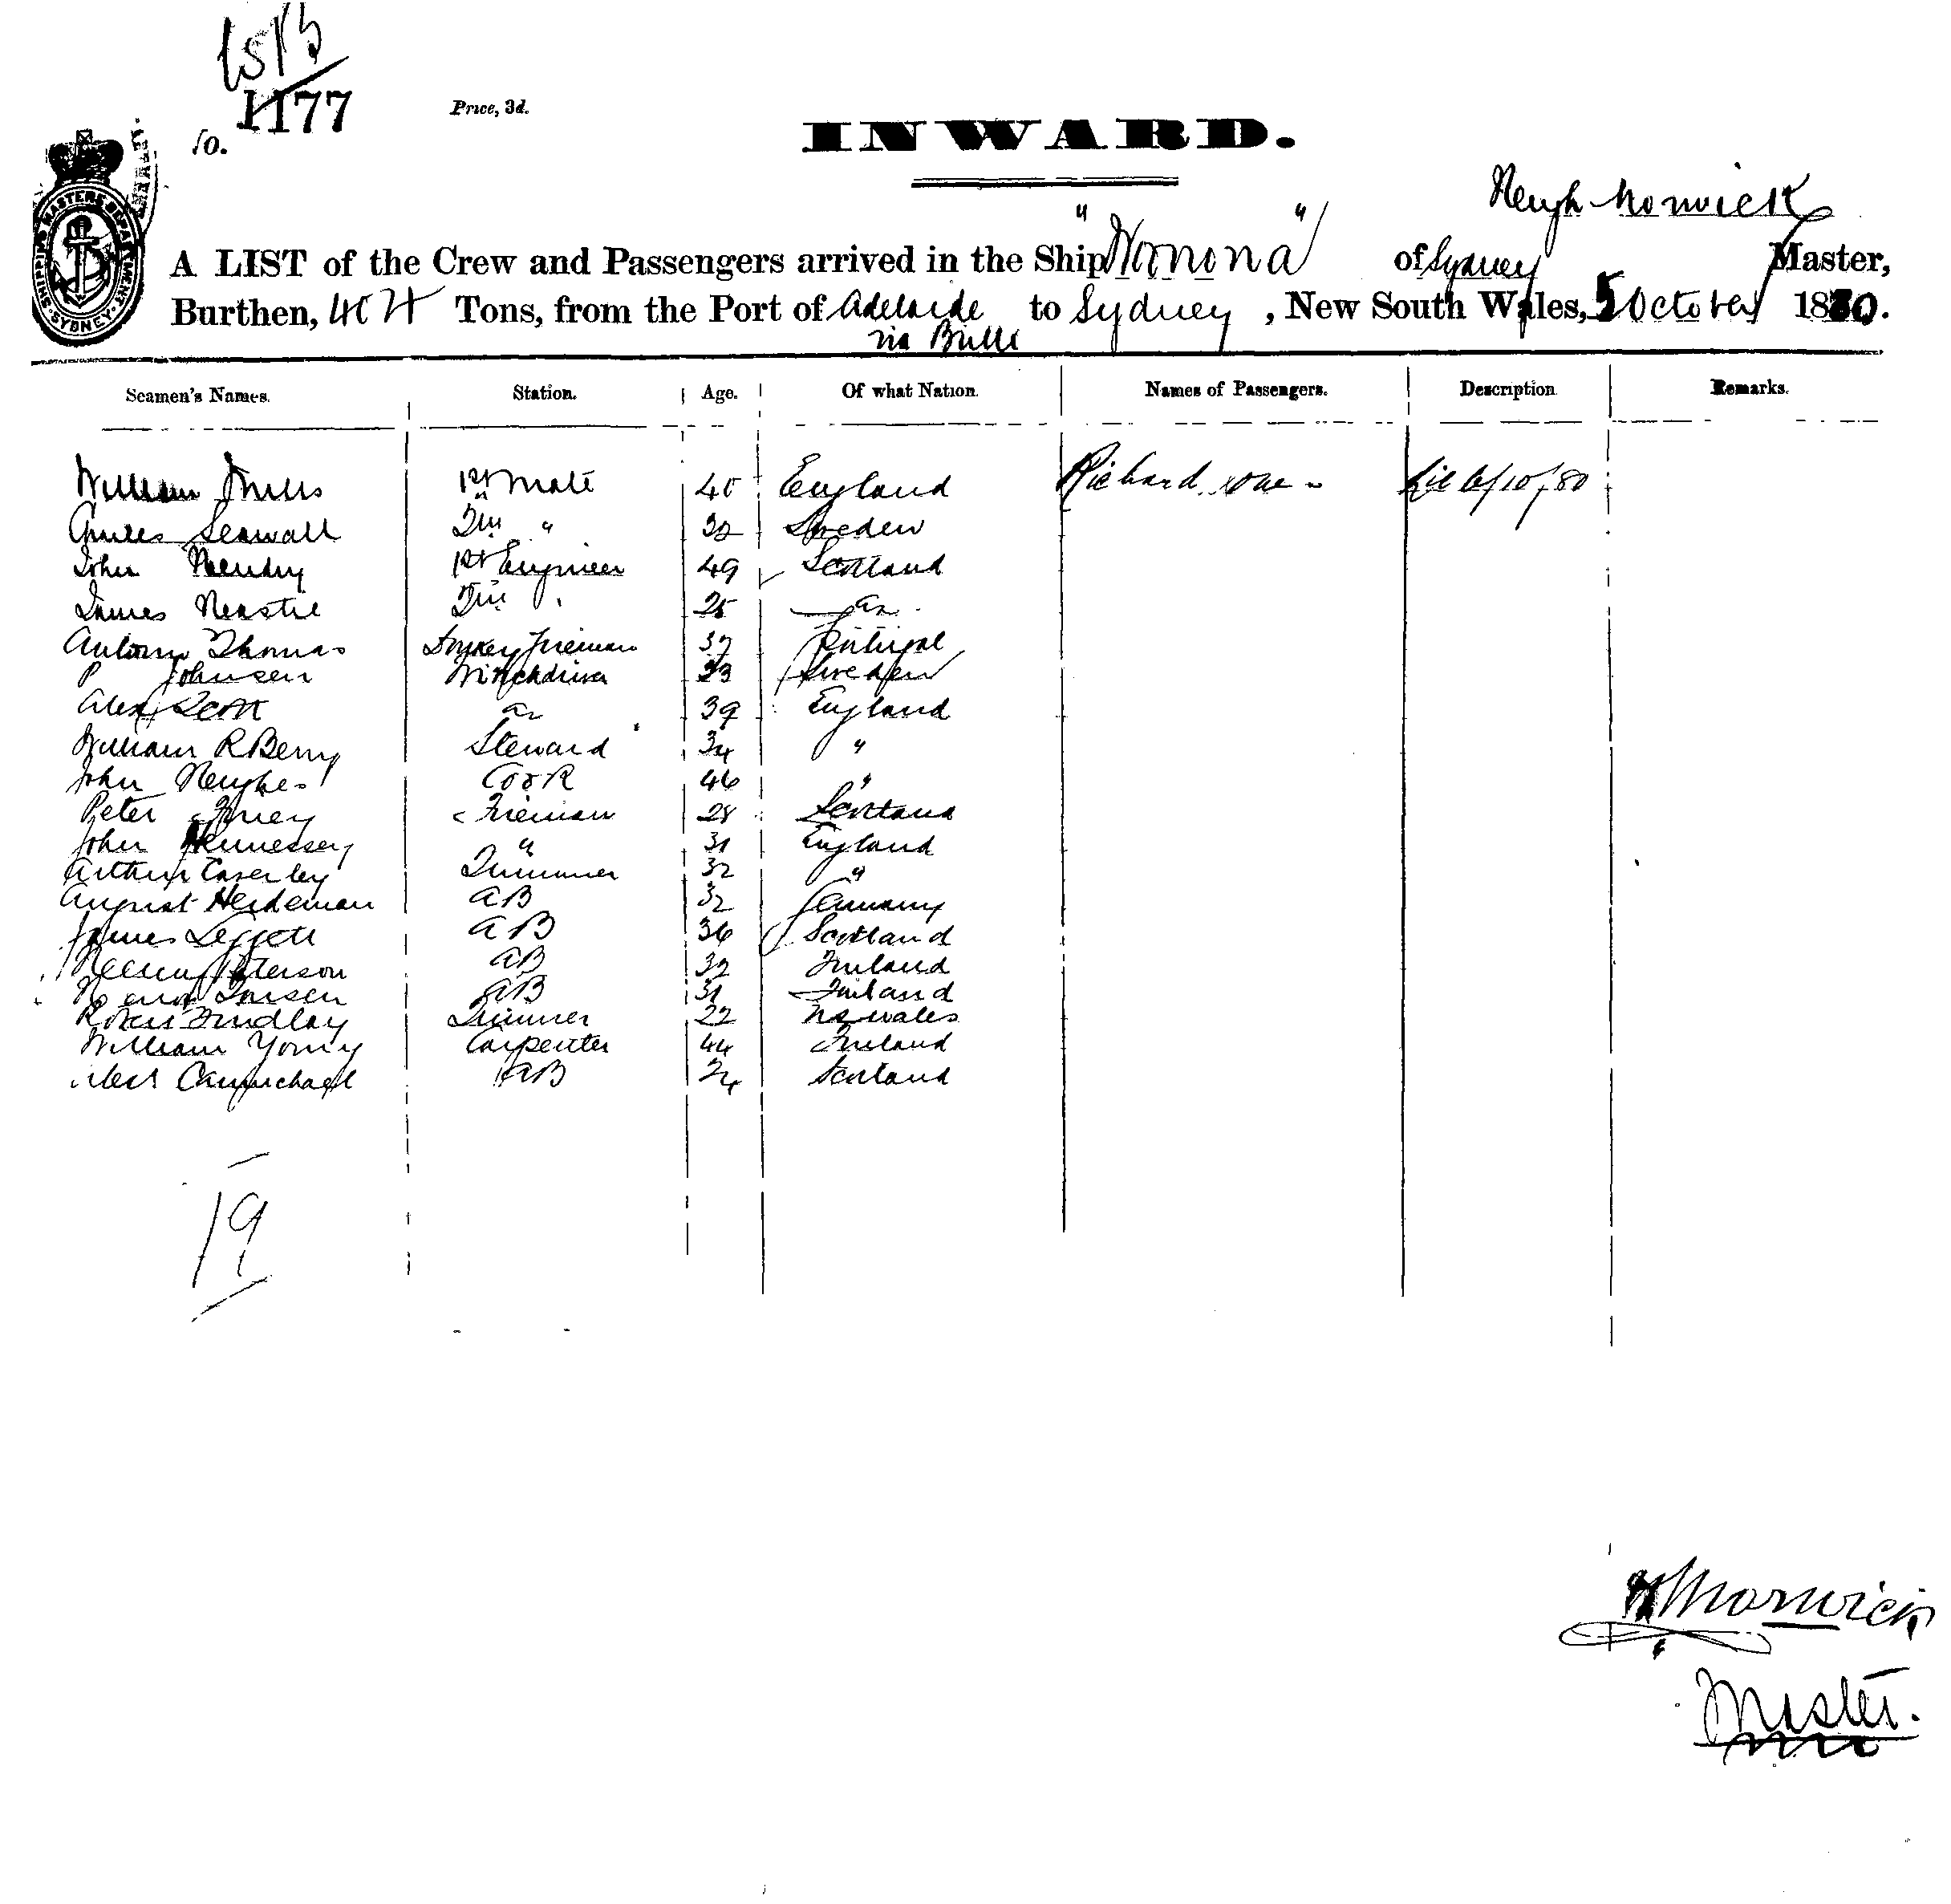 1513
1177
Price, 3d.
No.
INWARD.
Hugh Morwick
SHIPPING MASTERS DEPARTMENT
SYDNEY
A LIST of the Crew and Passengers arrived in the Ship "Wonona" of Sydney Master,
Burthen, Tons, from the Port of Adelaide to Sydney, New South Wales, 5 October 1880.
via Bulli
Seamen's Names. Station. Age. Of what Nation. Names of Passengers. Description. Remarks.
William Mills 1st Mate 40 England Richard 6/10/80
32 Sweden
John Hendry 1st Engineer 49 Scotland
James 25
Antonio Thomas Fireman 37 Portugal
P Johnsen Winchdriver 33 Sweden
Alex Scott 39 England
William R Berry Steward 34 "
John Hughes Cook 46 "
Peter Fireman 28 Scotland
John Hennessey " 31 England
Arthur Caserley Trimmer 32 "
August Heideman AB 32 Germany
James Leggett AB 36 Scotland
Henry Peterson AB 32 Finland
AB 31 Finland
Robert Findlay Trimmer 22 N S Wales
William Young Carpenter 44 Ireland
Alexr Carmichael AB 24 Scotland
19
H Morwick
Master.